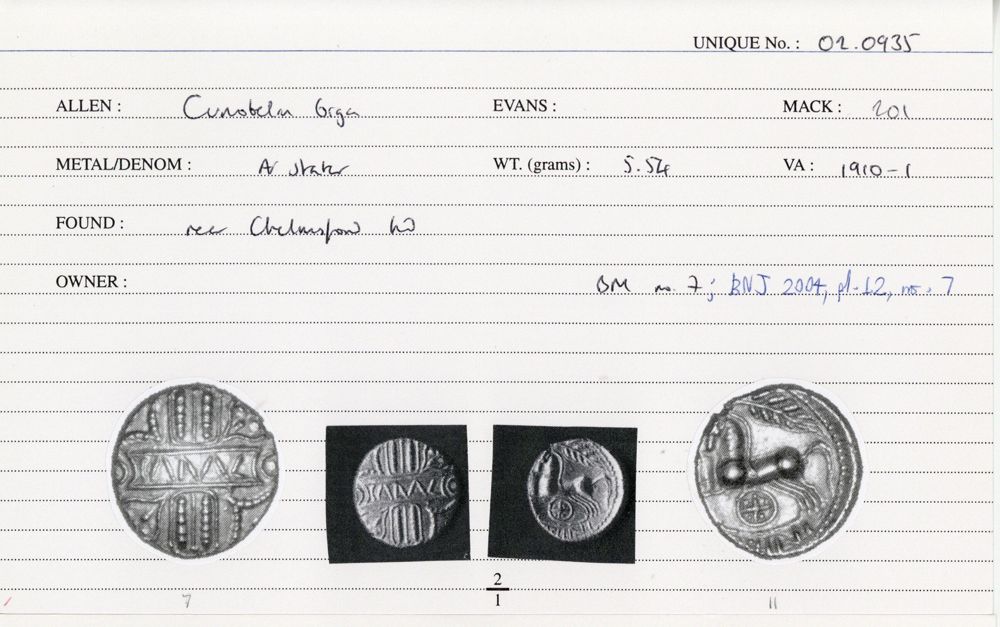 UNIQUE No. : 02.0935
ALLEN : Cunobelin Biga EVANS : MACK : 201
METAL/DENOM : AV stater WT. (grams) : 5.54 VA : 1910-1
FOUND : near Chelmsford
OWNER :
BM no. 7; BNJ 2004, pl. 12, no. 7
2
1
7 11